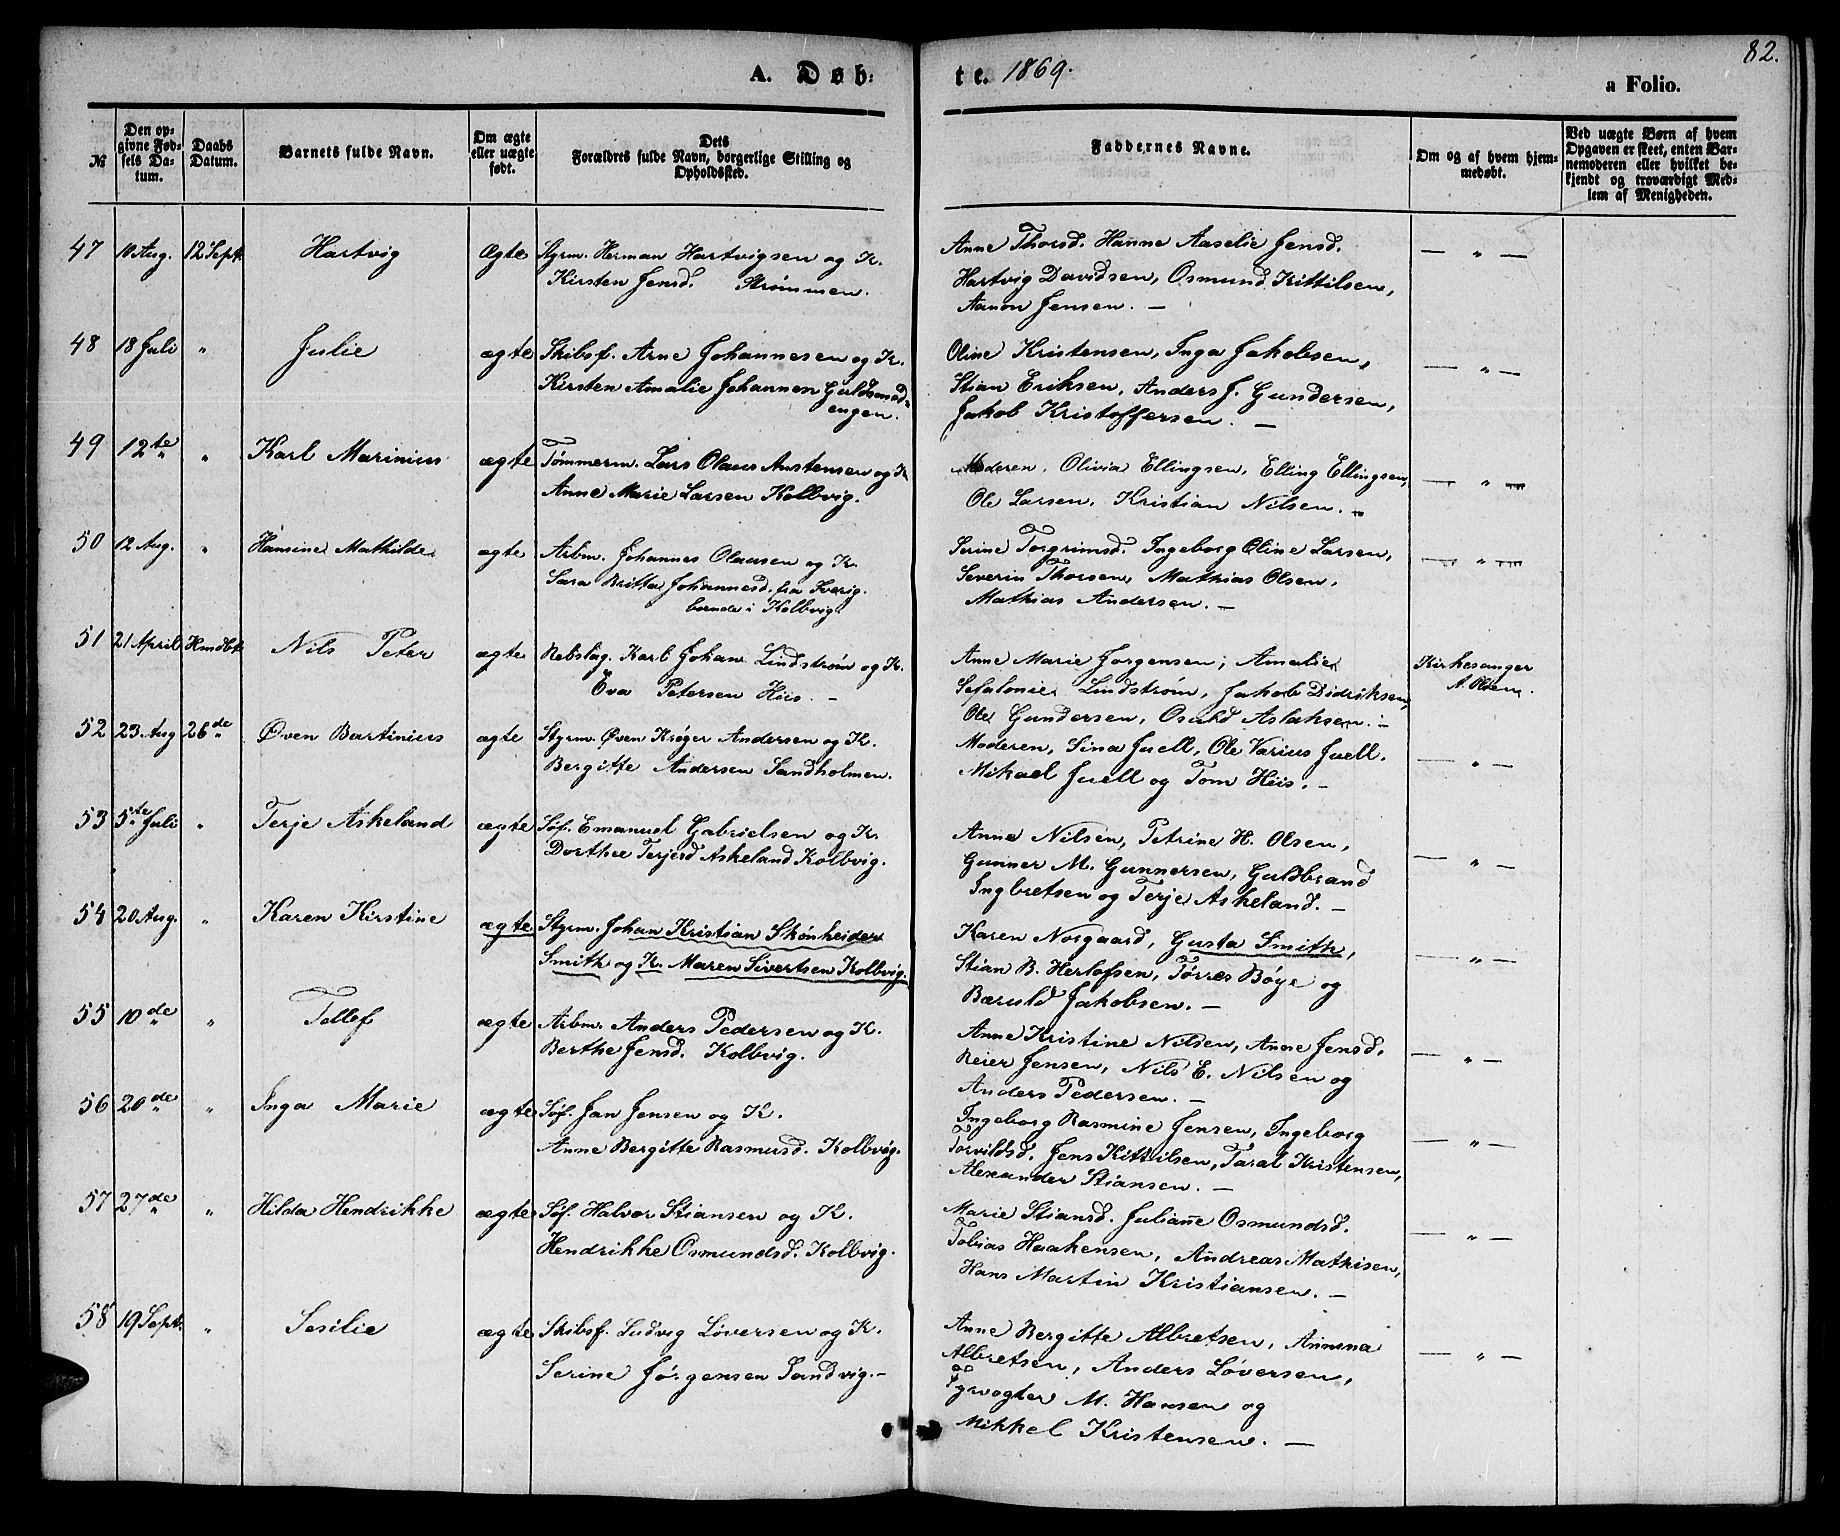 82.
A. Døb-
te. 1869.
a Folio.
№
Den op-
givne Fød-
sels Da-
tum.
Daabs
Datum.
Barnets fulde Navn.
Om ægte
eller uægte
født.
Dets
Forældres fulde Navn, borgerlige Stilling og
Opholdssted.
Faddernes Navne.
Om og af hvem hjem-
medøbt.
Ved uægte Børn af hvem
Opgaven er skeet, enten Bar-
nemoderen eller hvilket be-
kjendt og troværdigt Med-
lem af Menigheden.
47 10 Aug. 12 Sept. Hartvig Ægte Styrm. Herman Hartvigsen og K.
Kirsten Jensd. Strømmen.
Anne Thorsd. Hanne Aaselie Jensd.
Hartvig Davidsen, Osmund Kittilsen,
Aanon Jensen. —
— " —
48 18 Juli " Julie ægte Skibsf. Arne Johannesen og K.
Kirsten Amalie Johannen Guldsmed-
engen.
Oline Kristensen, Inga Jakobsen,
Stian Eriksen, Anders J. Gundersen,
Jakob Kristoffersen. —
— " —
49 12te " Karl Marinius ægte Tømmerm. Lars Olaus Austensen og K
Anne Marie Larsen Kolbvig.
Moderen, Olivia Ellingsen, Elling Ellingsen,
Ole Larsen, Kristian Nilsen. —
— " —
50 12 Aug. " Hansine Mathilde ægte Arbm. Johannes Olausen og K.
Sara Britta Johannesd. fra Sverig.
boende i Kolbvig.
Serine Torgrimsd. Ingeborg Oline Larsen,
Severin Thorsen, Mathias Olsen,
Mathias Andersen. —
— " —
51 21 April Hmdbt. Nils Peter ægte Rebslag. Karl Johan Lindstrøm og K.
Eva Petersen Hiis. —
Anne Marie Jorgensen, Amalie
Sefalonie Lindstrøm, Jakob Didriksen,
Ole Gundersen, Osuld Aslaksen. —
Kirkesanger
A. Olsen.
52 23 Aug 26de Øven Bartinius ægte Styrm. Øven Krøger Andersen og K.
Bergitte Andersen Sandholmen.
Moderen, Sina Juell, Ole Varius Juell.
Mikael Juell og Tom Hiis. —
— " —
53 5te Juli " Terje Askeland ægte Søf. Emanuel Gabrielsen og K.
Dorthee Terjesd Askeland Kolbvig.
Anne Nilsen, Petrine H. Olsen,
Gunner M. Gunnersen, Guldbrand
Ingbretsen og Terje Askeland. —
— " —
54 20 Aug. " Karen Kirstine ægte Styrm. Johan Kristian Skönheider
Smith og K. Maren Sivertsen Kolbvig.
Karen Norgaard, Gusta Smith,
Stian B. Herlofsen, Tørres Bøye og
Bæruld Jakobsen. —
— " —
55 10de " Tellef ægte Arbm. Anders Pedersen og K.
Berthe Jensd. Kolbvig.
Anne Kristine Nilsen, Anne Jensd.
Reier Jensen, Nils E. Nilsen og
Anders Pedersen. —
— " —
56 20de " Inga Marie ægte Søf. Jan Jensen og K.
Anne Bergitte Rasmusd. Kolbvig.
Ingeborg Rasmine Jensen, Ingeborg
Torvildsd. Jens Kittilsen, Taral Kristensen,
Alexander Stiansen. —
— " —
57 27de " Hilda Hendrikke ægte Søf. Halvor Stiansen og K.
Hendrikke Osmundsd. Kolbvig.
Marie Stiansd. Julianne Osmundsd.
Tobias Haakensen, Andreas Mathisen,
Hans Martin Kristiansen. —
— " —
58 19 Sept. " Sesilie ægte Skibsf. Ludvig Løversen og K.
Serine Jørgensen Sandvig. —
Anne Bergitte Albretsen, Annena
Albretsen, Anders Løversen,
Fyrvogter M. Hansen og
Mikkel Kristensen. —
— " —